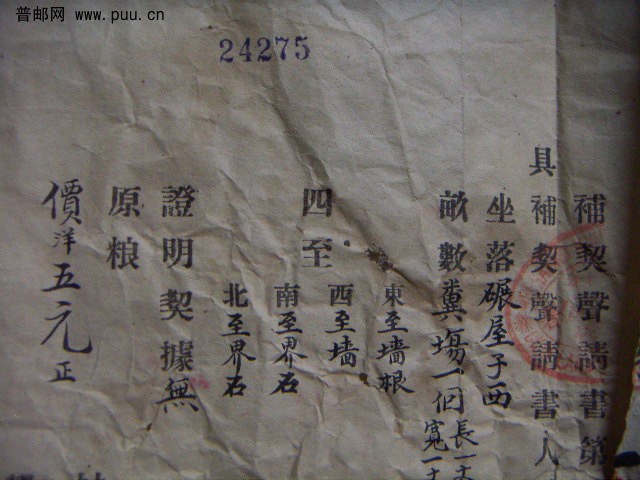 普邮网 www.puu.cn
24275
補契聲請書第
具補契聲請書人
坐落碾屋子西
畝數糞場一個長一丈
寬一十
四至
東至墻根
西至墻
南至界石
北至界石
證明契據無
原粮
價洋五元正